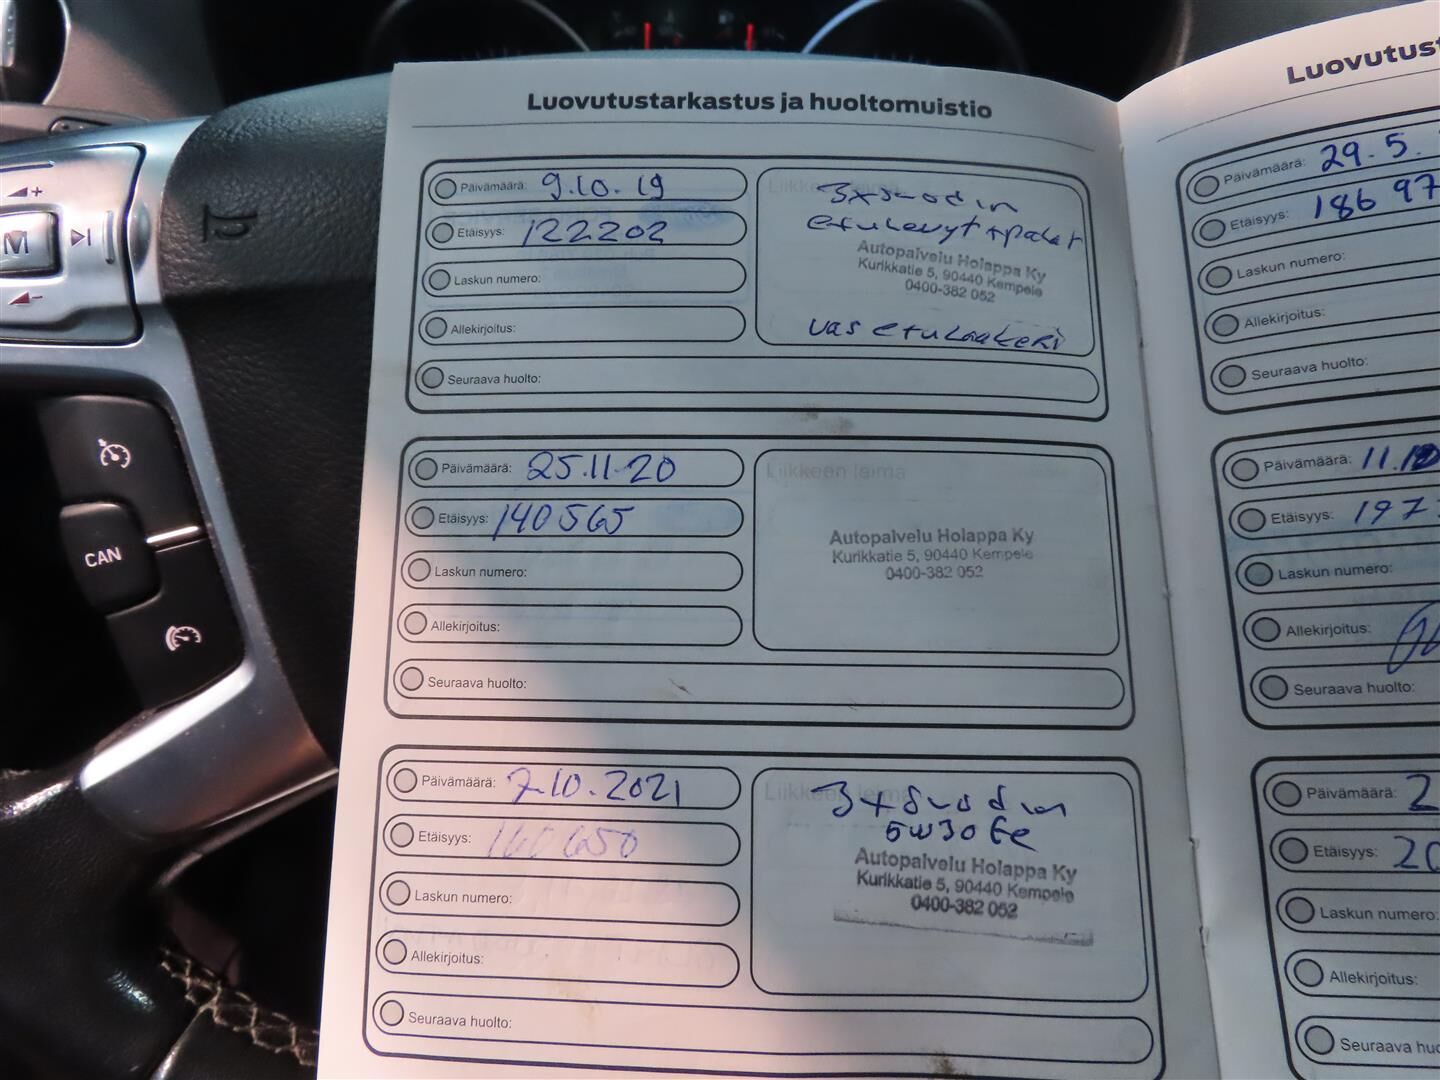 Luovutustarkastus ja huoltomuistio
Päivämäärä: 9.10.19
Etäisyys: 122202
Laskun numero:
Allekirjoitus:
Seuraava huolto:
Liikkeen leima
3xsuodin
etulevyt+palat
Autopalvelu Holappa Ky
Kurikkatie 5, 90440 Kempele
0400-382 052
vas etulaakeri
Päivämäärä: 25.11.20
Etäisyys: 140565
Laskun numero:
Allekirjoitus:
Seuraava huolto:
Liikkeen leima
Autopalvelu Holappa Ky
Kurikkatie 5, 90440 Kempele
0400-382 052
Päivämäärä: 7.10.2021
Etäisyys: 160650
Laskun numero:
Allekirjoitus:
Seuraava huolto:
Liikkeen leima
3xsuodin
5w30
Autopalvelu Holappa Ky
Kurikkatie 5, 90440 Kempele
0400-382 052
Luovutust
Päivämäärä: 29.5.
Etäisyys: 186 97
Laskun numero:
Allekirjoitus:
Seuraava huolto:
Päivämäärä: 11.10
Etäisyys: 197
Laskun numero:
Allekirjoitus:
Seuraava huolto:
Päivämäärä: 2
Etäisyys: 20
Laskun numero:
Allekirjoitus:
Seuraava huo
M
CAN